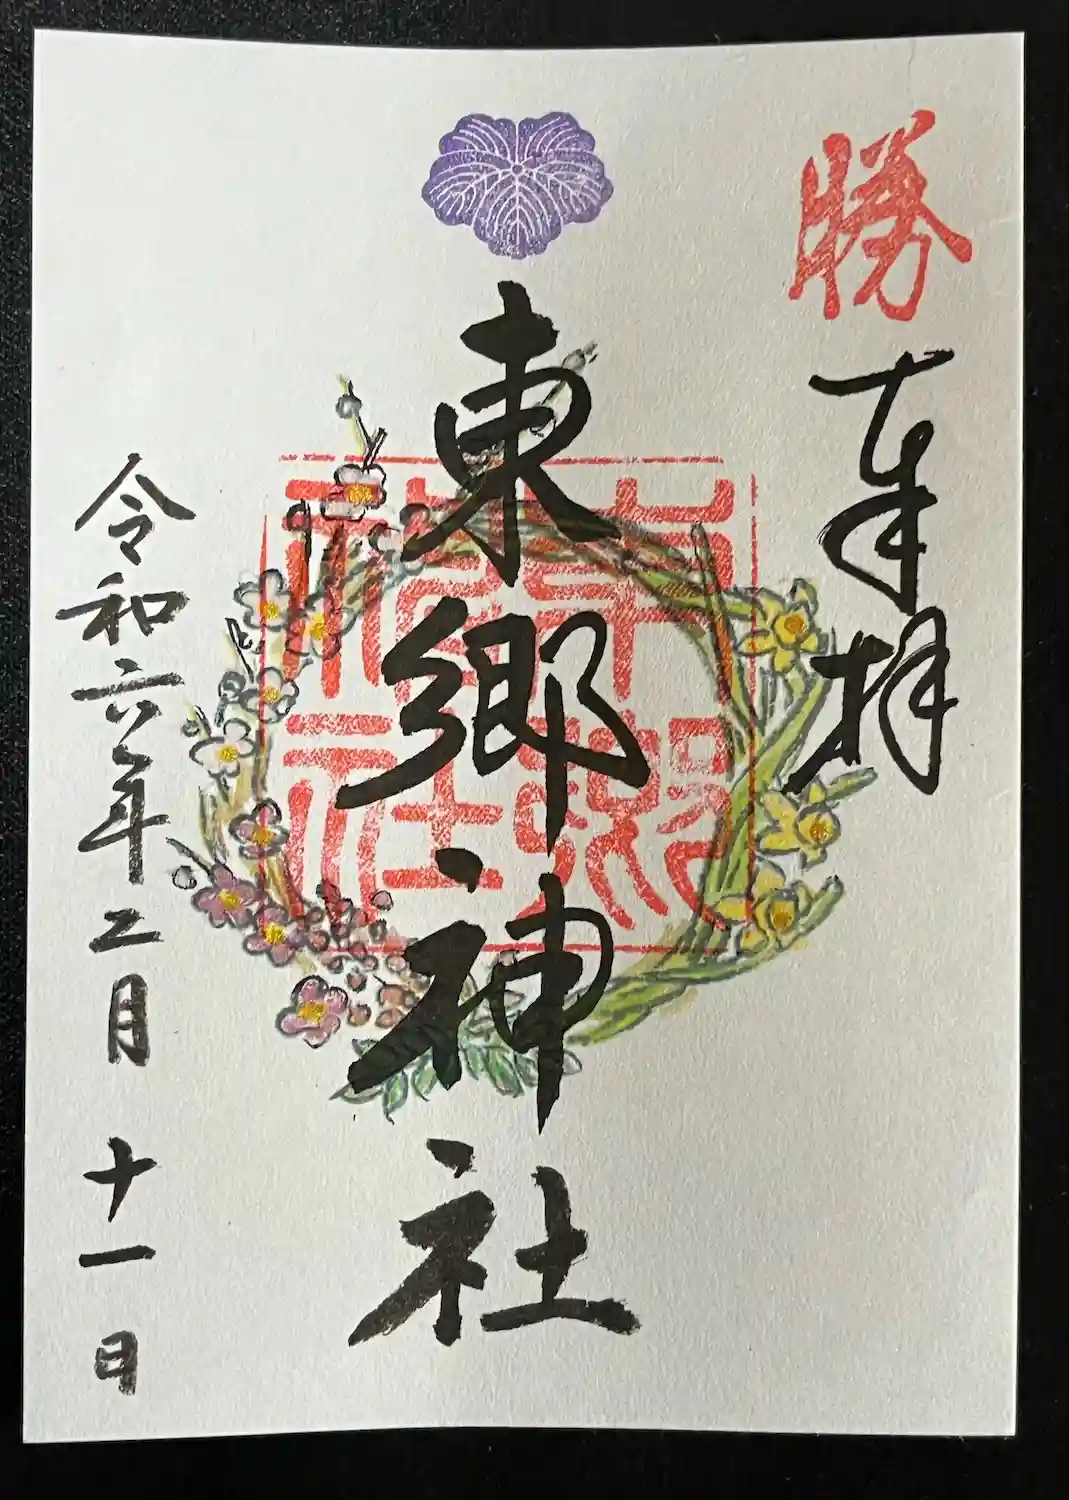 勝
奉拝
東郷神社
東郷神社
令和六年二月十一日